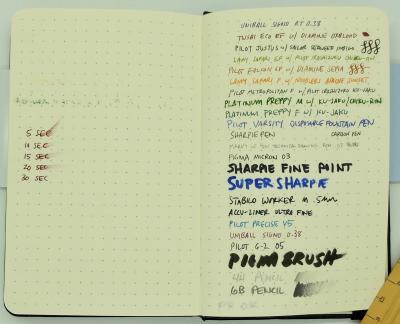 5 SEC
10 SEC
15 SEC
20 SEC
30 SEC
UNIBALL SIGNO RT 0.38
TWSBI ECO EF W/ DIAMINE OXBLOOD
PILOT JUSTUS W/ SAILOR
LAMY SAFARI EF W/ PILOT IROSHIZUKU CHIKU-RIN
PILOT FALCON EF W/ DIAMINE SEPIA
LAMY SAFARI F W/ NOODLERS APACHE SUNSET
PILOT METROPOLITAN F W/ PILOT IROSHIZUKU KU-JAKU
PLATINUM PREPPY M W/ KU-JAKU/CHIKU-RIN
PLATINUM PREPPY F W/ KU-JAKU
PILOT VARSITY DISPOSABLE FOUNTAIN PEN
SHARPIE PEN
CARBON PEN
TECHNICAL DRAWING PEN
PIGMA MICRON 03
SHARPIE FINE POINT
SUPER SHARPIE
STABILO WORKER M .5MM
ACCU-LINER ULTRA FINE
PILOT PRECISE V5
UNIBALL SIGNO 0.38
PILOT G-2 05
PIGMA BRUSH
4H PENCIL
6B PENCIL